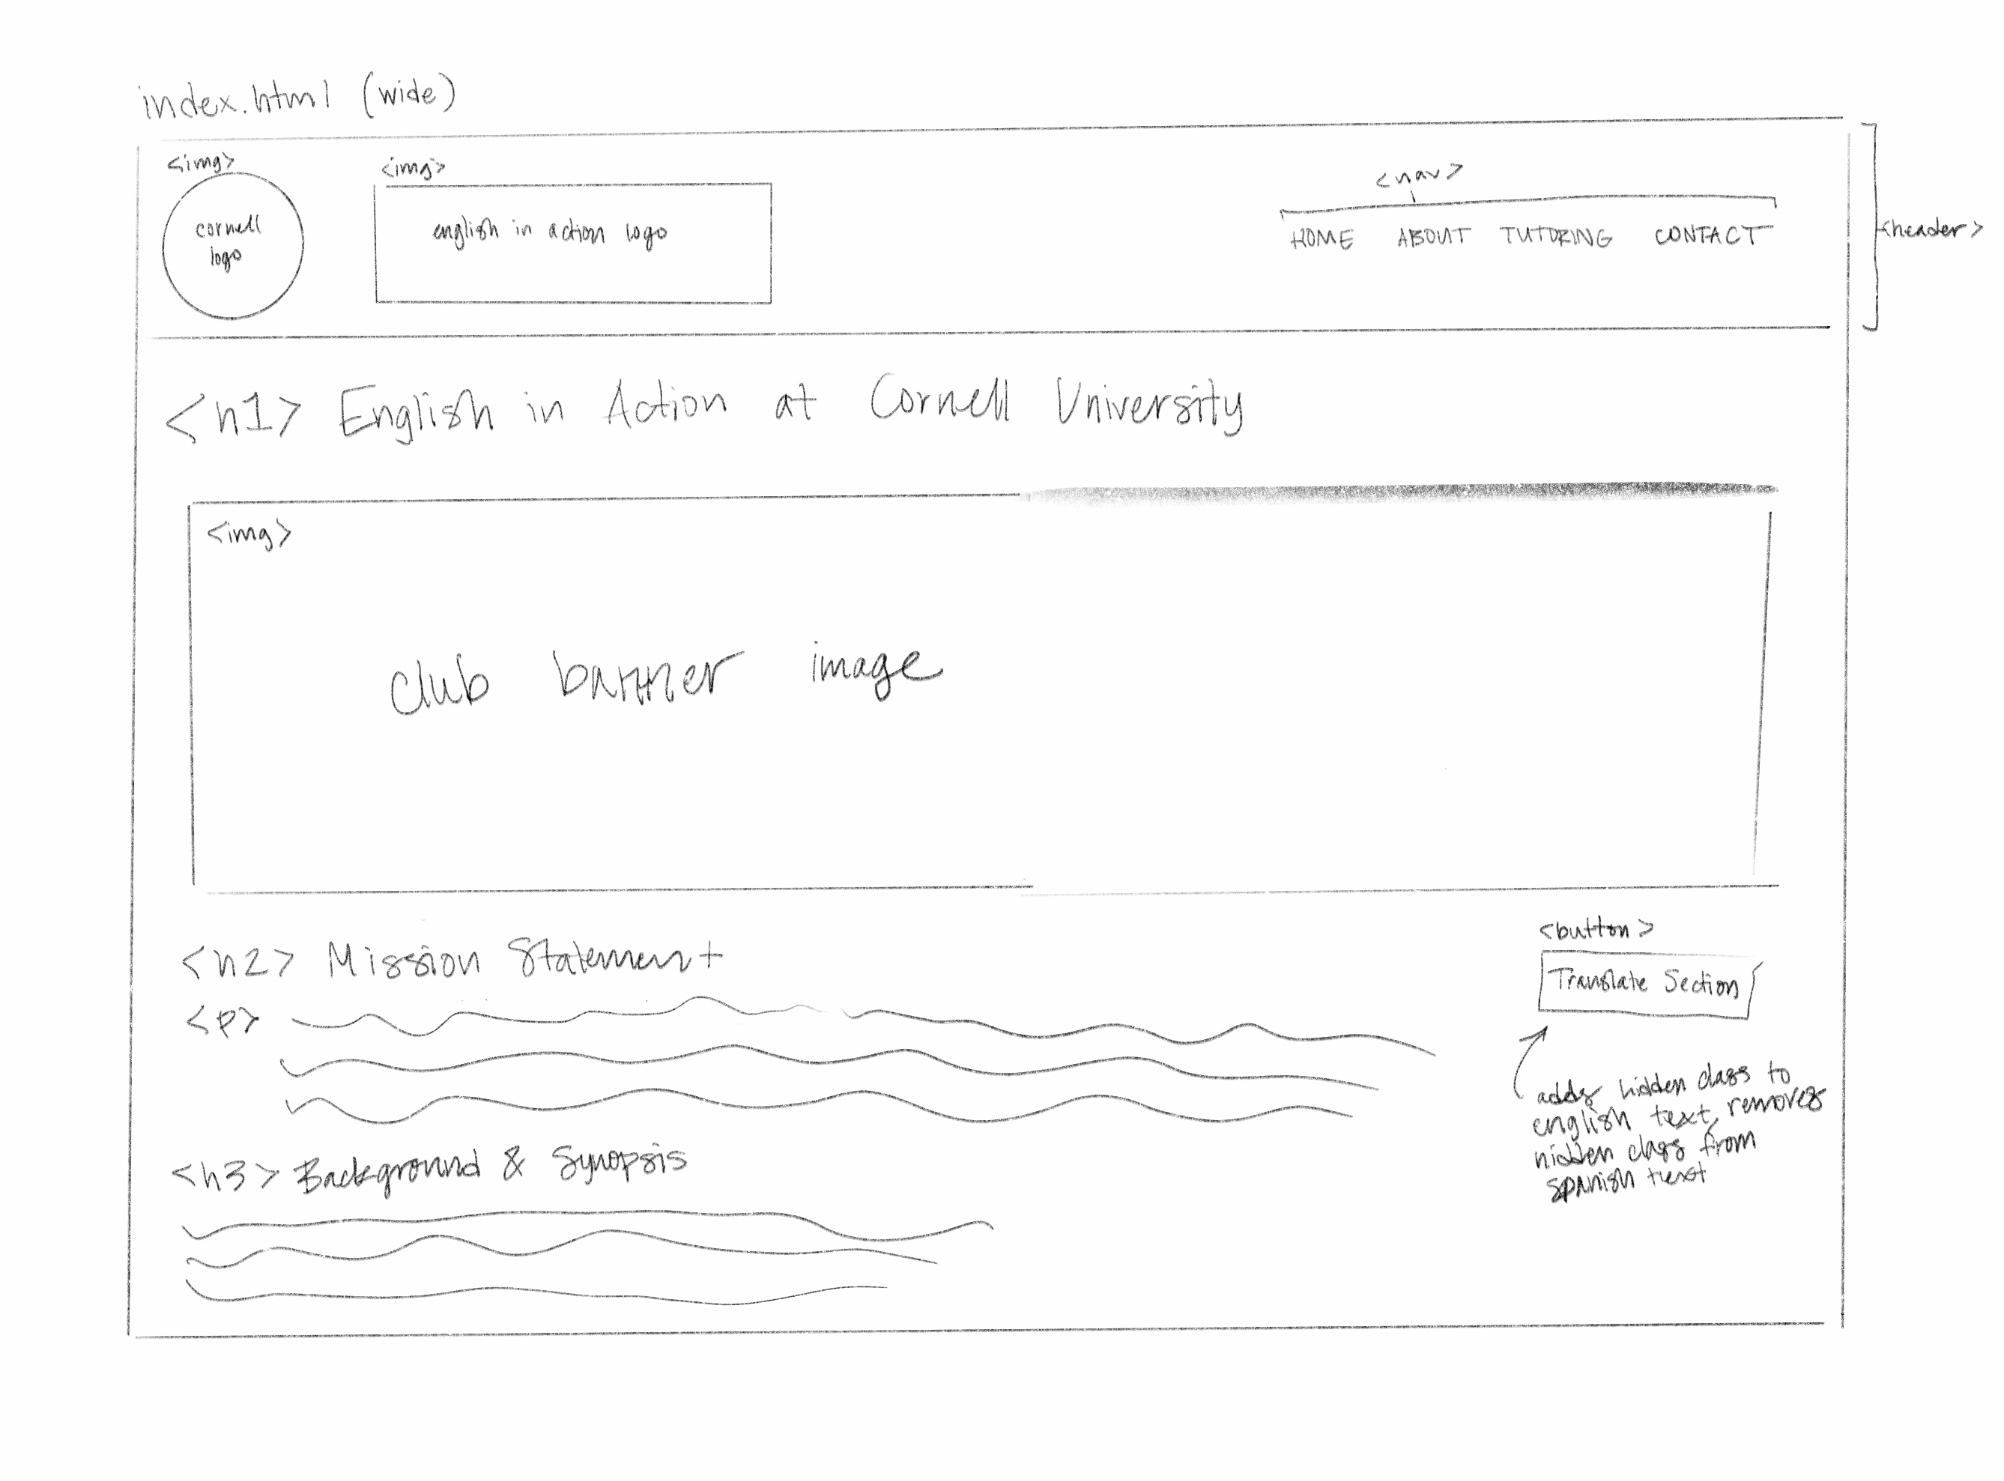 index.html (wide)
<img>
cornell
logo
<img>
english in action logo
<nav>
HOME ABOUT TUTORING CONTACT
<header>
<h1> English in Action at Cornell University
<img>
club banner image
<h2> Mission Statement
<p>
<button>
Translate Section
adds hidden class to
english text, removes
hidden class from
spanish text
<h3> Background & Synopsis